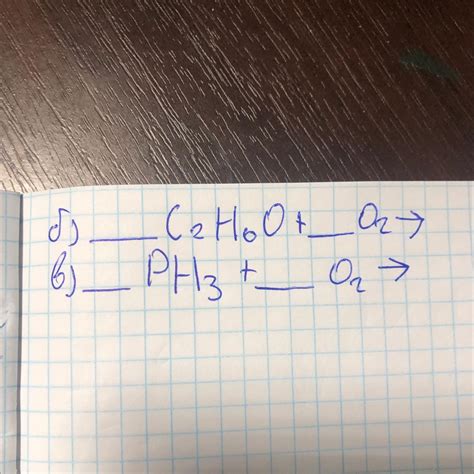 б) ___ C₂H₆O + __ O₂ →
в) __ PH₃ + ___ O₂ →